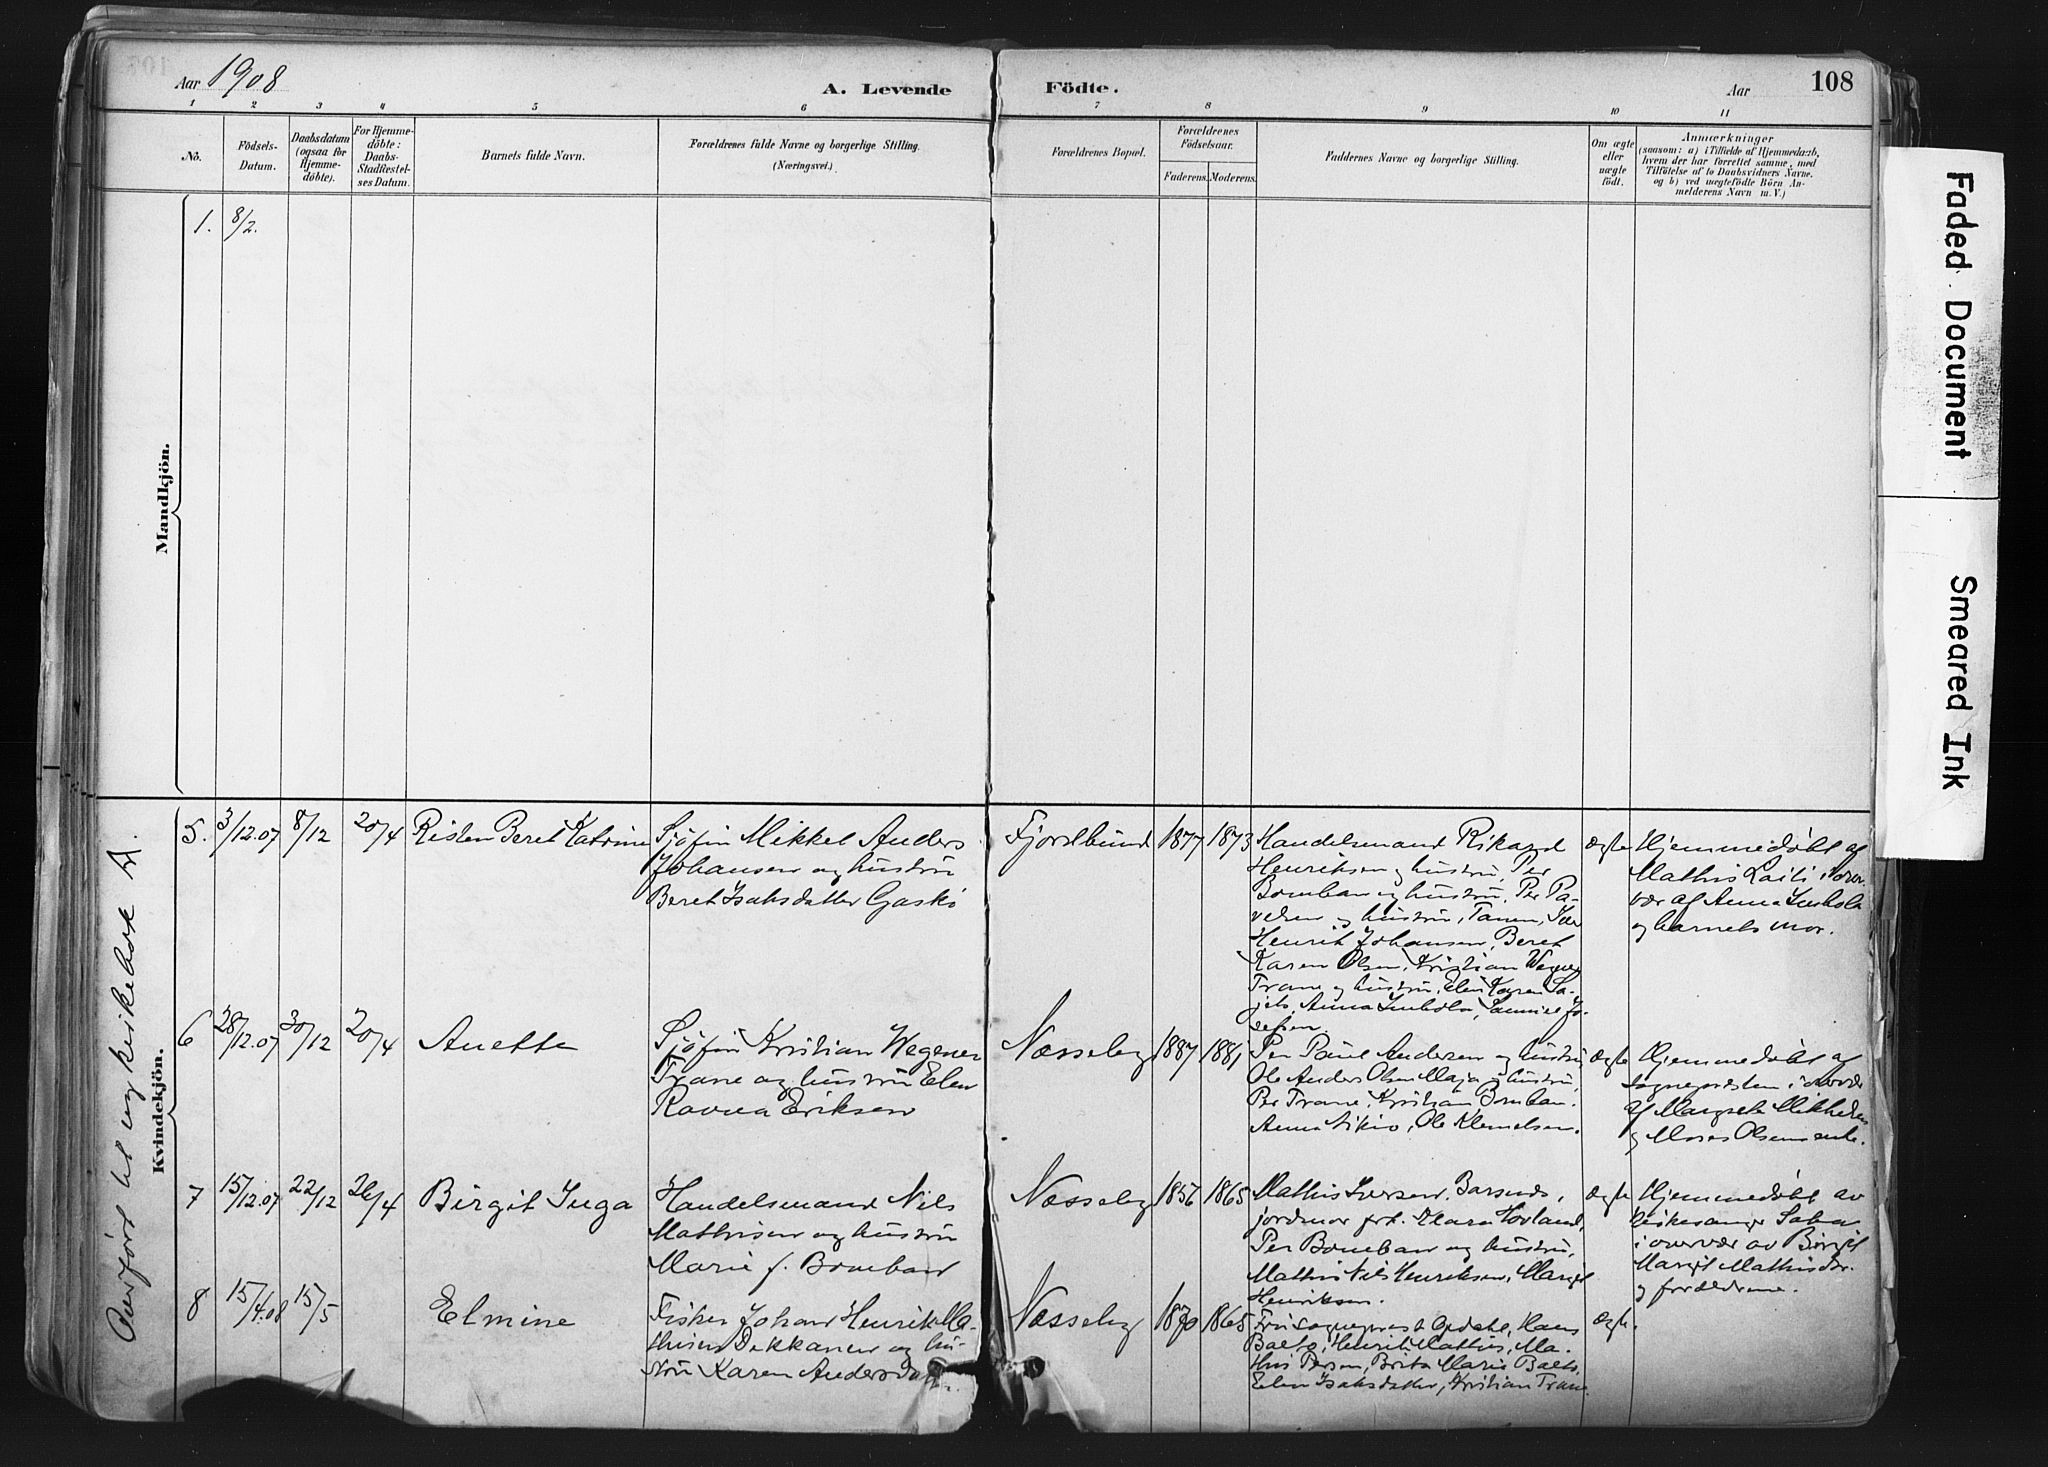 Aar 1908
A. Levende Födte.
Aar
108
1 2 3 4 5 6 7 8 9 10 11
No.
Födsels-
Datum.
Daabsdatum
(ogsaa for
Hjemme-
döbte).
For Hjemme-
döbte:
Daabs-
Stadfæstel-
ses Datum.
Barnets fulde Navn.
Forældrenes fulde Navne og borgerlige Stilling.
(Næringsvei.)
Forældrenes Bopæl.
Forældrenes
Födselsaar.
Faderens.
Moderens.
Faddernes Navne og borgerlige Stilling.
Om ægte
eller
uægte
födt.
Anmærkninger
(saasom: a) i Tilfælde af Hjemmedaab,
hvem der har forrettet samme, med
Tilföielse af to Daabsvidners Navne,
og b) ved uægtefödte Börn An-
melderens Navn m. V.)
Mandkjön.
1. 8/2.
Kvindekjön.
Overført til ny kirkebok
5. 3/12.07 8/12 20/4 Risten Beret Katrine
Sjöfin Mikkel Anders
Johansen og hustru
Beret Isaksdatter Gaski
Fjordbund 1877 1873
Handelsmand Rikard
Henriksen og hustru, Per
Bomban og hustru, Per Pa-
velsen og hustru, Tanen, Iver
Henrik Johansen, Beret
Karen Olsen, Kristian Wegner
Trane og hustru, Elen Karen Sa-
jets, Anna
sefsen.
ægte
Hjemmedöbt af
Mathis Laiti i over-
vær af Anna
og barnets mor.
6 28/12.07 30/12 20/4 Anette
Sjöfin Kristian Wegener
Trane og hustru Elen
Ravna Eriksen
Næsseby 1887 1881
Per Paul Andersen og hustru
Ole Anders Olsen Maja og hustru,
Per Trane, Kristian Bomban.
Anna Nikio, Ole Klemetsen.
ægte
Hjemmedöbt af
sognepresten i overvær
af Margrete Mikkelsen
og Moses Olsens enke.
7 15/12.07 22/12 26/4 Birgit Inga
Handelsmand Nils
Mathisen og hustru
Marie f. Bomban
Næsseby 1857 1865
Mathis Iversen, Barsnes,
jordmor frk. Klara Hovland,
Per Bomban og hustru,
Mathis Nils Henriksen, Margit
Henriksen.
ægte
Hjemmedöbt av
kirkesanger Saba
i overvær av Birgit
Margit Mathisdtr.
og forældrene.
8 15/4.08 15/5 Elmine
Fisker Johan Henrik Ma-
thisen Dikkanen og hu-
stru Karen Andersdatter.
Næsseby 1870 1865
Fru sogneprest Opdahl, Hans
Balto, Henrik Mathis, Ma-
this Persen, Brita Marie Balto,
Elen Isaksdatter, Kristian Trane
ægte.
Faded Document
Smeared Ink